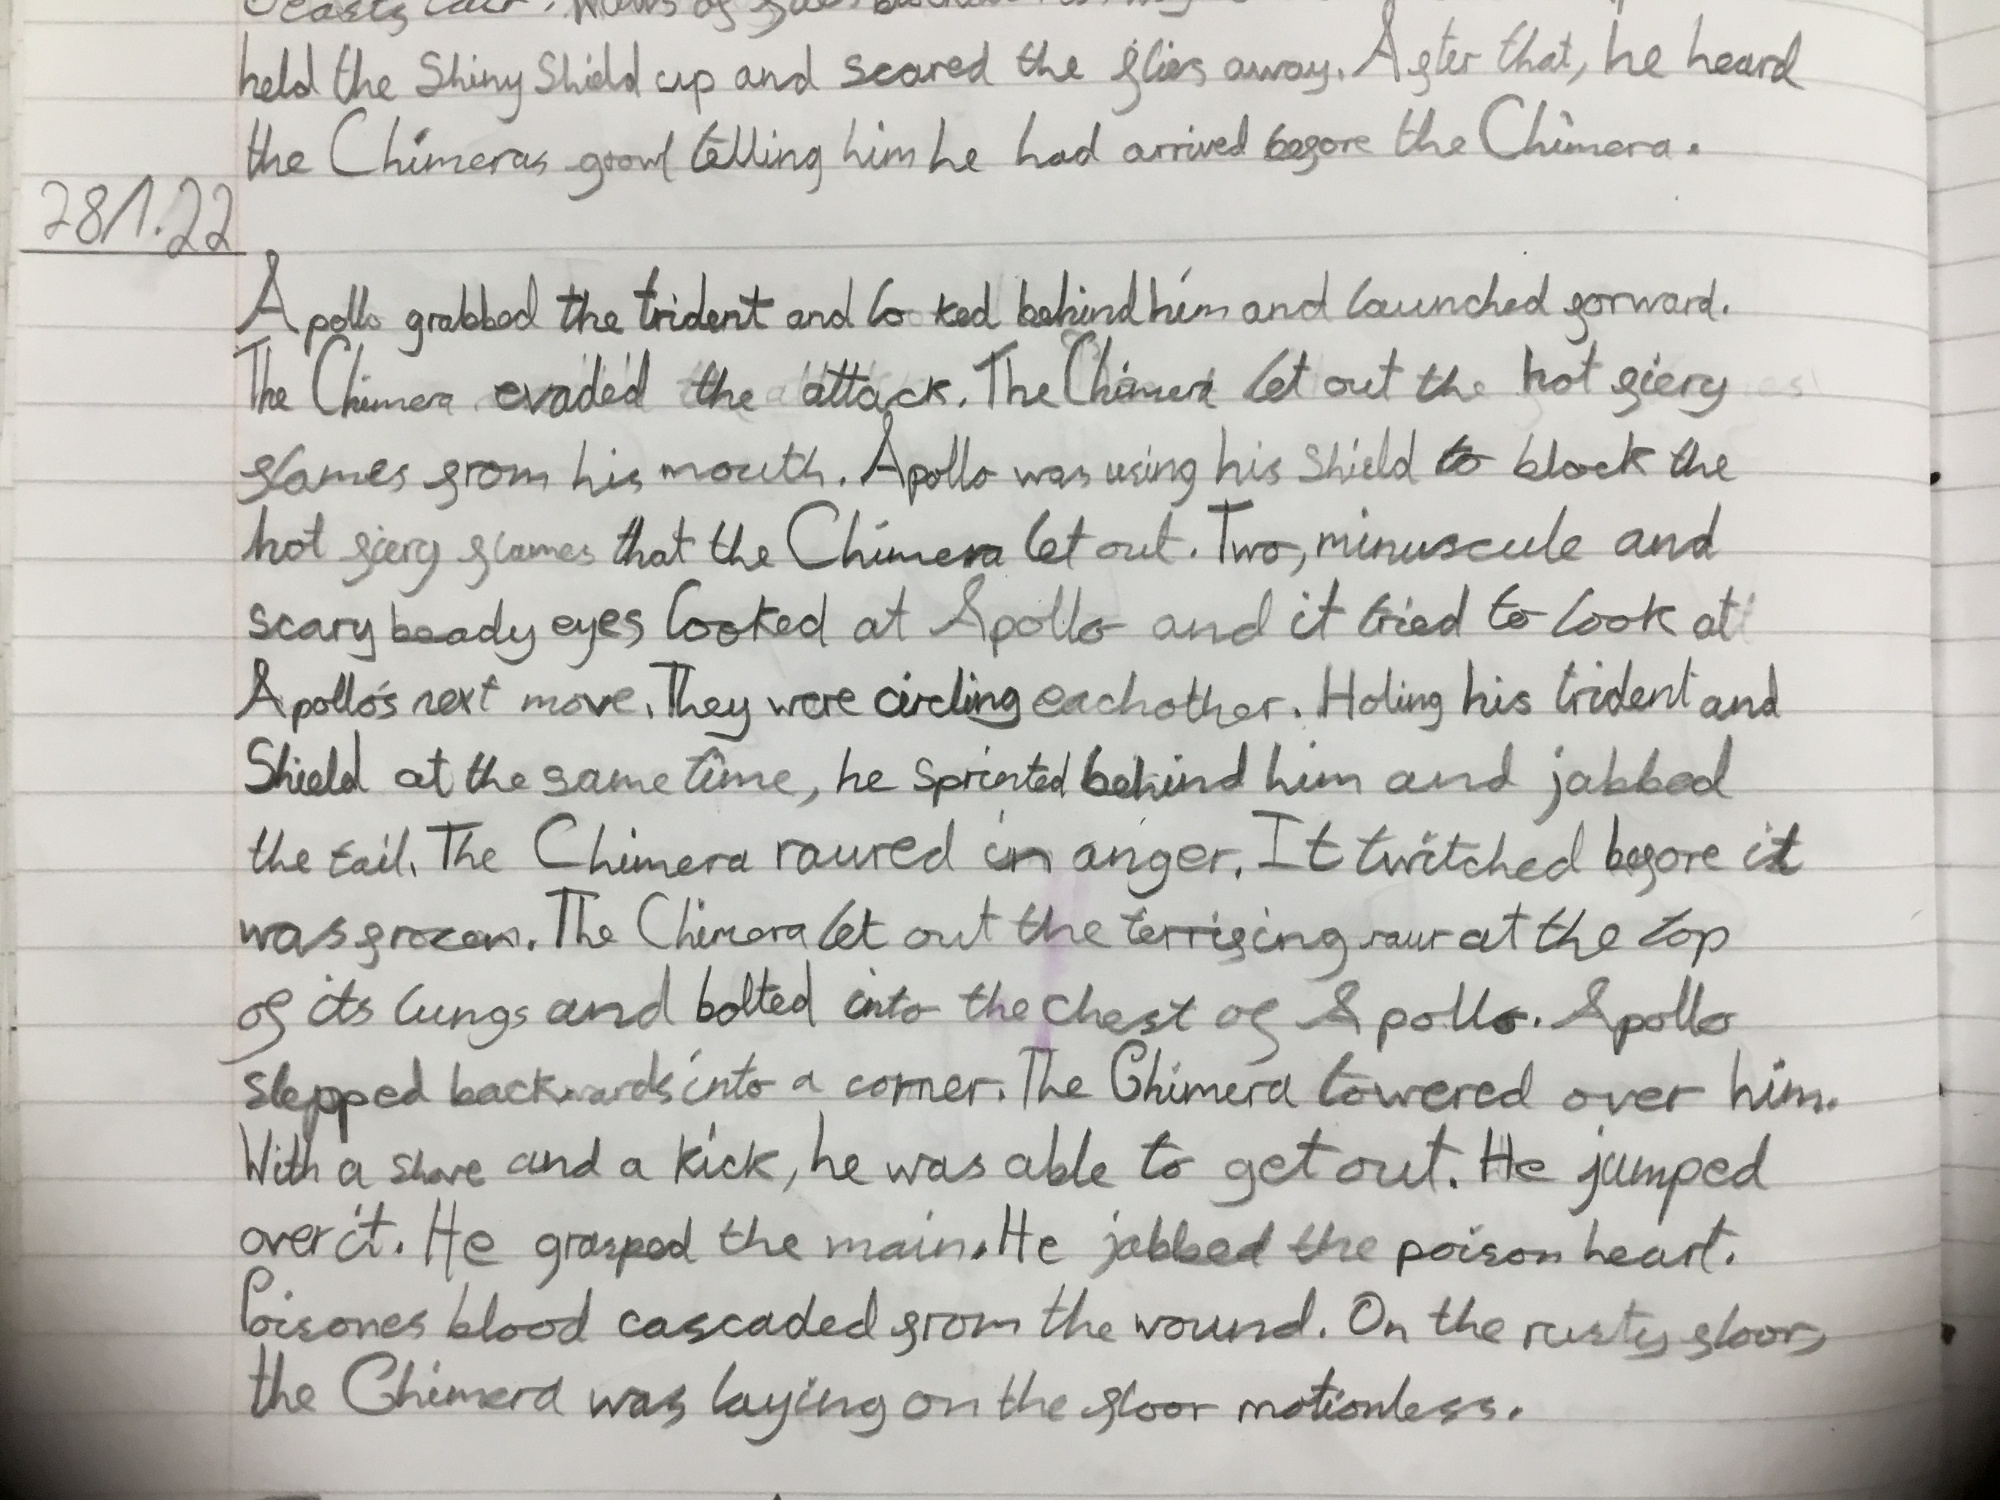 held the Shiny Shield up and scared the flies away. After that, he heard
the Chimeras growl telling him he had arrived before the Chimera.
28/1.22
Apollo grabbed the trident and looked behind him and launched forward.
The Chimera evaded the attack. The Chimera let out the hot fiery
flames from his mouth. Apollo was using his Shield to block the
hot fiery flames that the Chimera let out. Two, minuscule and
scary beady eyes looked at Apollo and it tried to look at
Apollo's next move. They were circling eachother. Holing his trident and
Shield at the same time, he sprinted behind him and jabbed
the tail. The Chimera raured in anger. It twitched before it
was frozen. The Chimera let out the terrifing raur at the top
of its lungs and bolted into the chest of Apollo. Apollo
stepped backwards into a corner. The Chimera towered over him.
With a shove and a kick, he was able to get out. He jumped
over it. He grasped the main. He jabbed the poison heart.
Poisones blood cascaded from the wound. On the rusty floor,
the Chimera was laying on the floor motionless.